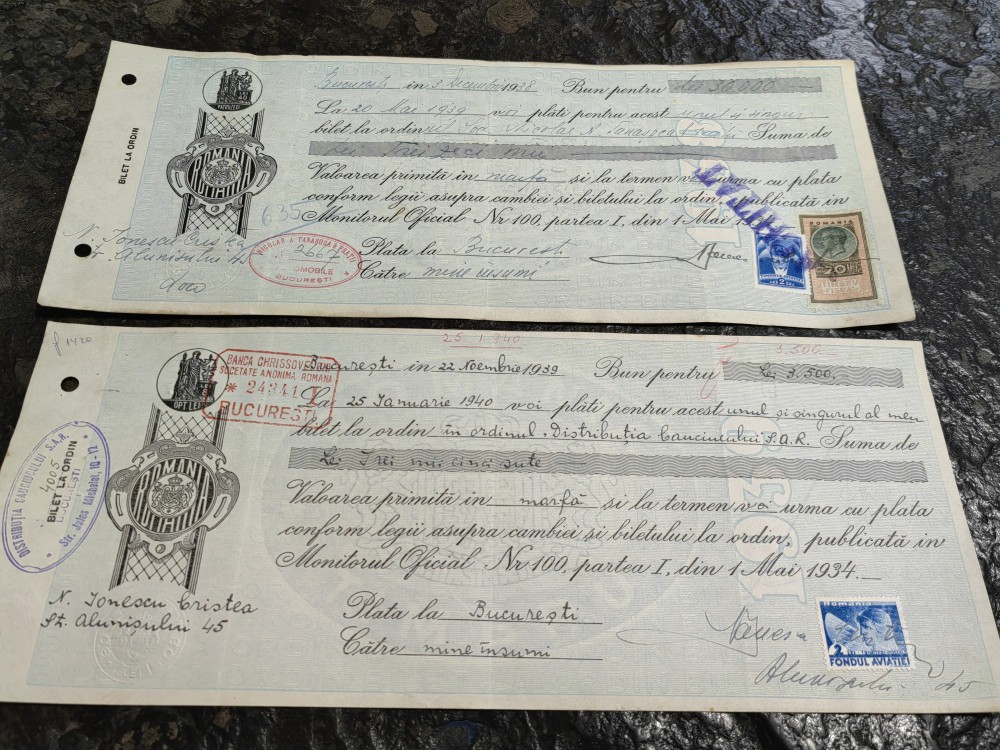 BILET LA ORDIN
ROMANIA
București in 3 Decembrie 1938 Bun pentru Lei 30.000
La 20 Mai 1939 voi plăti pentru acest unul și singur
bilet la ordin Soc. Nicolae A. Tanasoca Suma de
Lei Trei zeci mii
Valoarea primită in marfă si la termen voi urma cu plata
conform legii asupra cambiei si biletului la ordin, publicată in
Monitorul Oficial Nr 100, partea I, din 1 Mai
635
N. Ionescu Cristea
Str. Alunișului 45
Loco
NICOLAE A TANASOCA & FRATII
3667
AUTOMOBILE
BUCURESTI
Plata la București
Către mine însumi
LEI 2
ROMANIA
20
1420
25 1 940
3.500
OPT LEI
BANCA CHRISSOVELONI
SOCIETATE ANONIMA ROMANA
BUCURESTI
București in 22 Noembrie 1939 Bun pentru Lei 3.500.
La 25 Ianuarie 1940 voi plăti pentru acest unul și singurul al meu
bilet la ordin în ordinul „Distribuția Cauciucului S.A.R. Suma de
Lei Trei mii cinci sute
Valoarea primită in marfă si la termen voi urma cu plata
conform legii asupra cambiei si biletului la ordin, publicată in
Monitorul Oficial Nr 100, partea I, din 1 Mai 1934.
DISTRIBUȚIA CAUCIUCULUI S.A.R.
4005
BILET LA ORDIN
BUCURESTI
Str. Jules Michelet, 10-12
ROMANIA
1939
N. Ionescu Cristea
St. Alunișului 45
Plata la București
Către mine însumi
Romania
2 LEI
FONDUL AVIAȚIEI
Alunișului 45